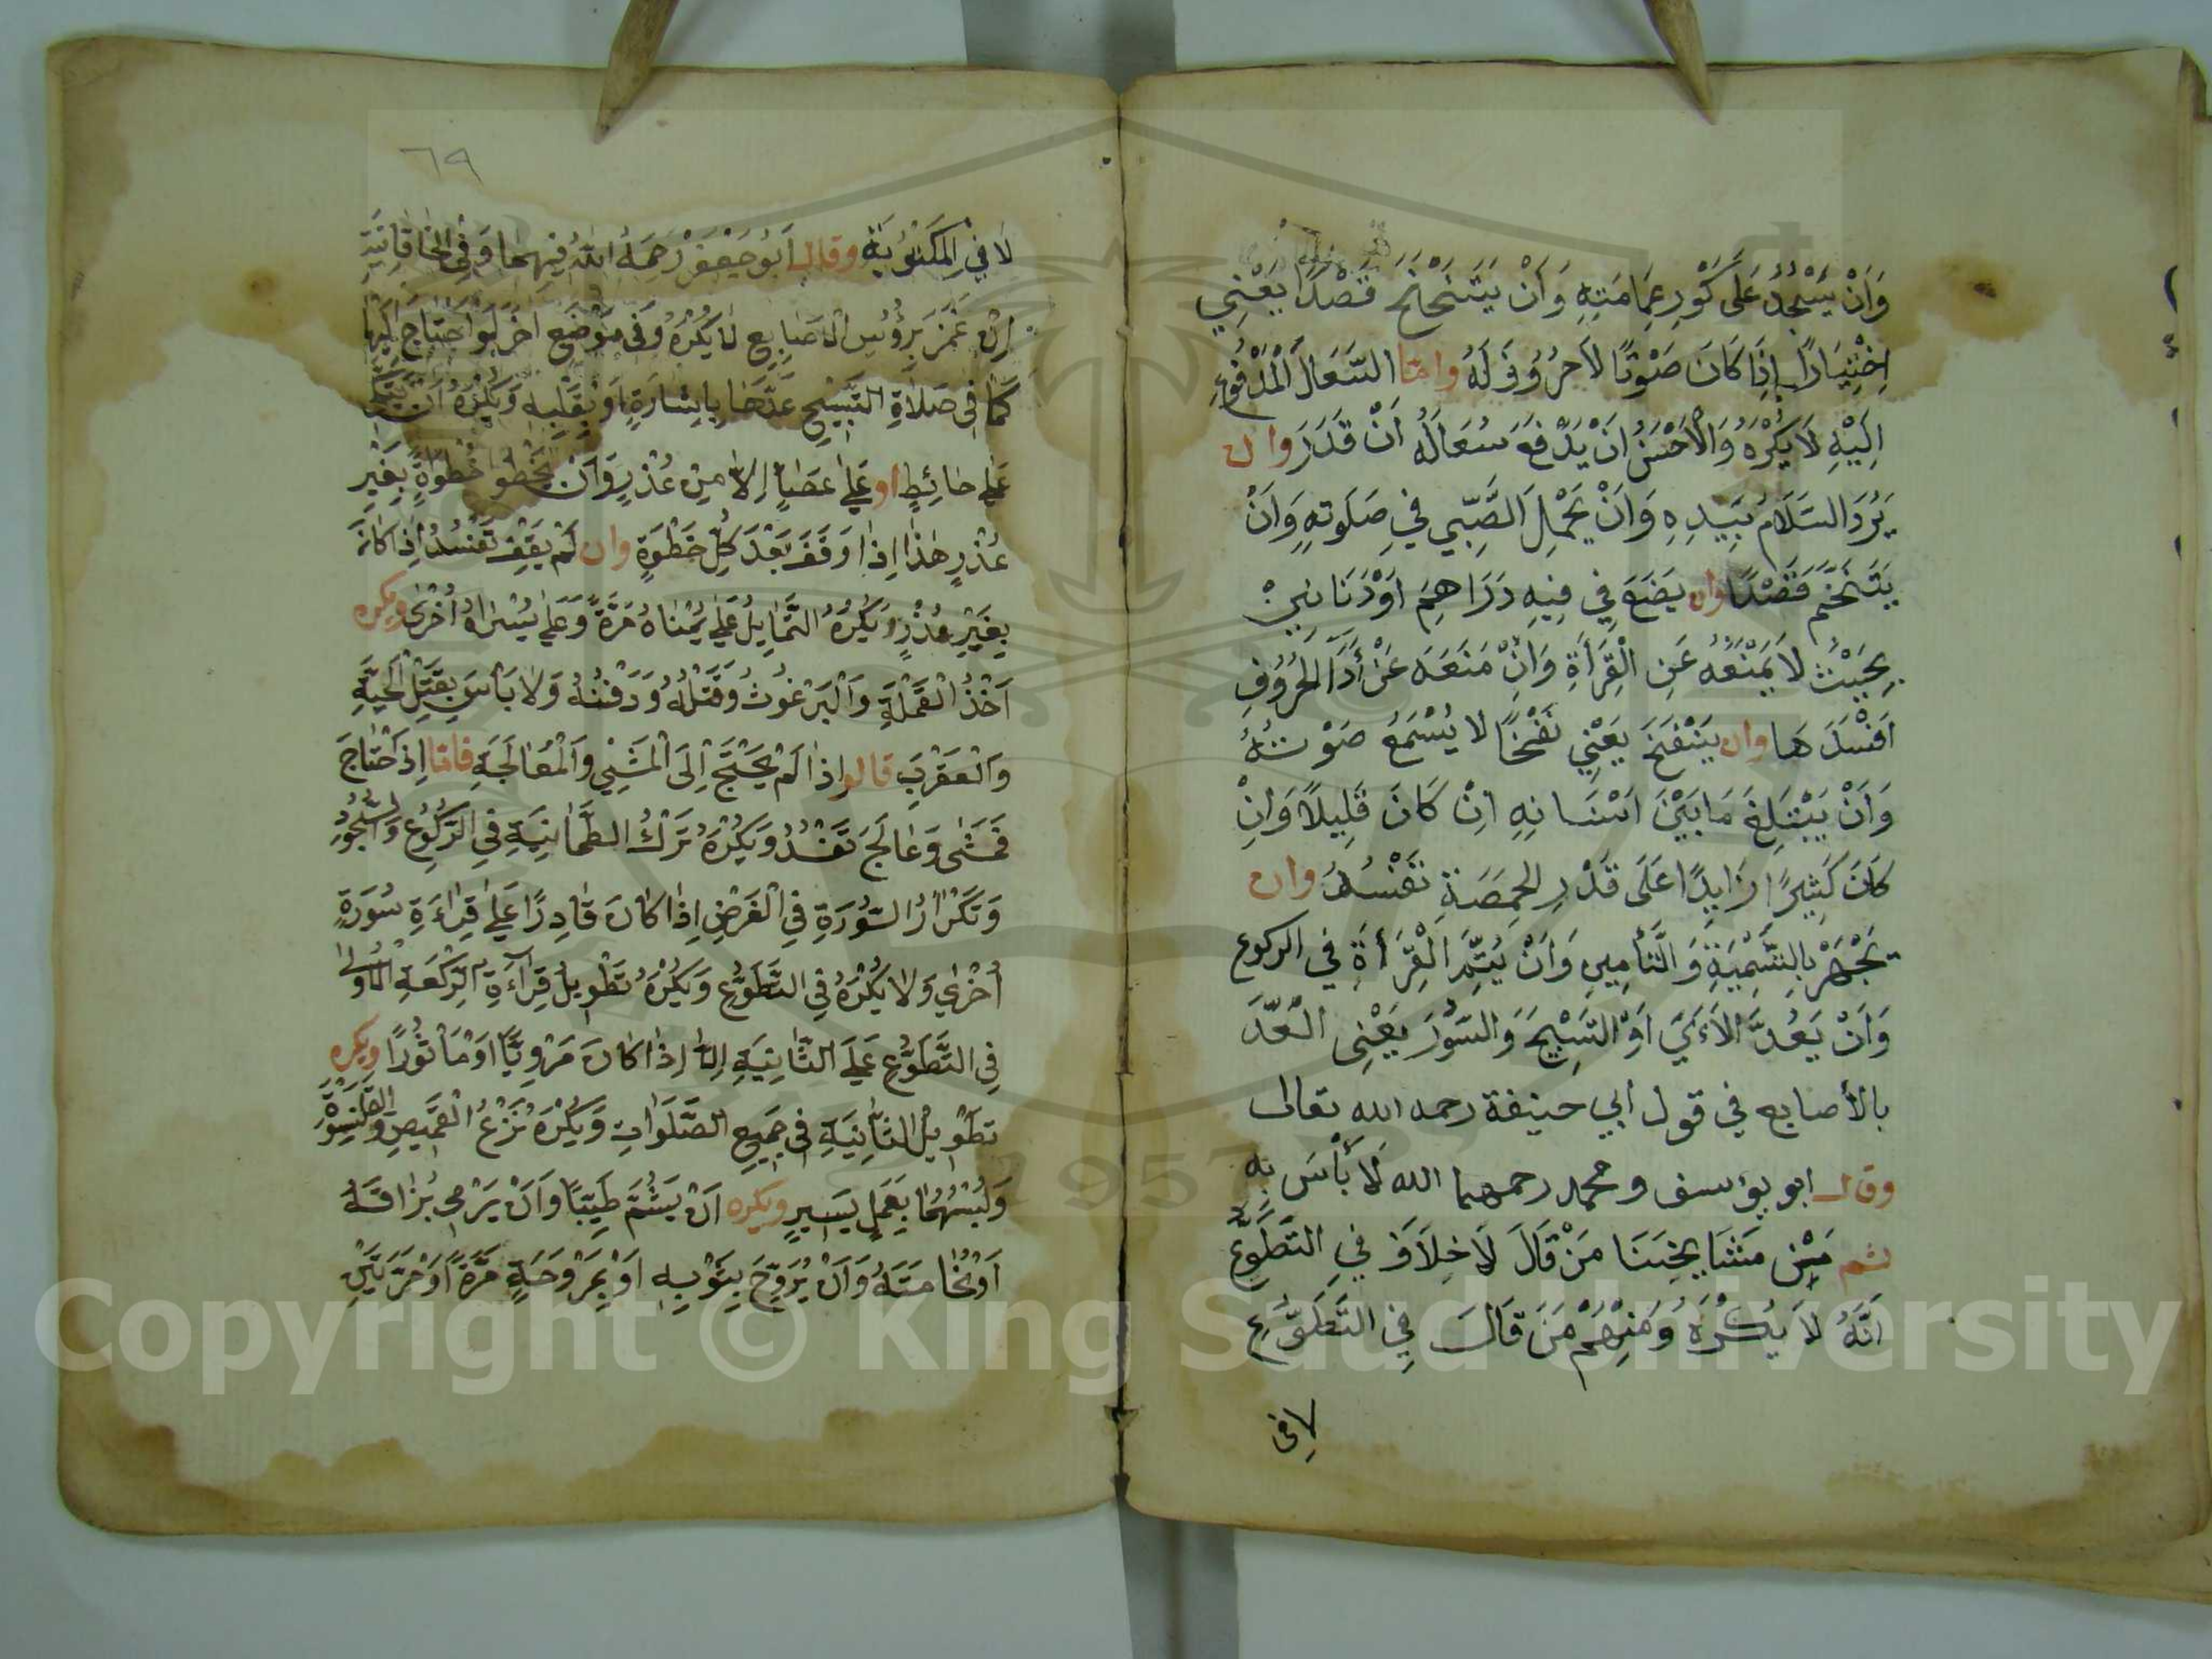 وَاَنْ يَسْجُدَ عَلَى كَوْرِ عِمَامَتِهِ وَاَنْ يَتَنَحْنَحَ قَصْدًا يَعْنِي
اِخْتِيَارًا اِذَا كَانَ صَوْتًا لَا حُرُوفَ لَهُ وامّا السُّعَالُ الْمَدْفُوعُ
اِلَيْهِ لَا يُكْرَهُ وَالْاَحْسَنُ اَنْ يَدْفَعَ سُعَالَهُ اَنْ قَدَرَ وان
يَرُدَّ السَّلَامَ بِيَدِهِ وَاَنْ يَحْمِلَ الصَّبِّي فِي صَلَوتِهِ وَاَنْ
يَتَنَخَّمَ قَصْدًا وان يَضَعَ فِي فِيهِ دَرَاهِمَ اَوْ دَنَانِيرَ
بِحَيْثُ لَا يَمْنَعُهُ عَنِ الْقِرَأَةِ وَاِنْ مَنَعَهُ عَنْ أَدَآ الْحُرُوفِ
اَفْسَدَهَا وان يَنْفَخَ يَعْنِي نَفْخًا لَا يُسْمَعُ صَوْتُهُ
وَاَنْ يَبْتَلِعَ مَا بَيْنَ اَسْنَانِهِ اِنْ كَانَ قَلِيلًا وَاِنْ
كَانَ كَثِيرًا زَايِدًا عَلَى قَدْرِ الْحِمَّصَةِ تَفْسُدُ وان
يَجْهَرَ بِالتَّسْمِيَةِ وَالتَّأمِينِ وَاَنْ يُتِمَّ الْقِرَأَةَ فِي الركوع
وَاَنْ يَعُدَّ الْاَءَيَ اَوِ التَّسْبِيحَ وَالسُّوَرَ يَعْنِى الْعَدَّ
بالأصابع في قول ابي حنيفة رحمه الله تعالى
وقال ابو يؤسف ومحمد رحمهما الله لَا بَأْسَ بِهِ
ثم مِنْ مَشَايِخِنَا مَنْ قَالَ لَا خِلَافَ فِي التَّطَوُّعِ
اَنَّهُ لَا يُكْرَهُ وَمِنْهُمْ مَنْ قَالَ فِي التَّطَوُّعِ
لا فى
٦٩
لَا فِي الْمَكْتُوبَةِ وقال اَبُو جَعْفَرْ رَحِمَهُ اللّٰهُ فِيهِمَا وَفِى الْخَاقَانِيَةِ
اِنْ غَمَزَ بِرُؤُسِ الْاَصَابِعِ لَا يُكْرَهُ وَفِى مَوْضِعٍ اٰخَرَ لَوِ احْتَاجَ اِلَيْهَا
كَمَا فِى صَلَاةِ التَّسْبِيحِ عَدَّهَا بِاِشَارَةٍ اَوْ بِقَلْبِهِ وَيُكْرَهُ اَنْ يَتَّكِئَ
عَلٰى حَائِطٍ او عَلٰى عَصًا اِلَّا مِنْ عُذْرٍ وَاَنْ يَخْطُوَ خُطْوَةً بِغَيْرِ
عُذْرٍ هٰذَا اِذَا وَقَفَ بَعْدَ كُلِّ خَطْوَةٍ وان لَمْ يَقِفْ تَفْسُدُ اِذَا كَانَ
بِغَيْرِ عُذْرٍ وَيُكْرَهُ التَّمَايِلُ عَلٰى يُمْنَاهُ مَرَّةً وَعَلٰى يُسْرَاهُ اُخْرٰى ويكره
اَخْذُ الْقَمْلَةِ وَالْبَرْغُوثِ وَقَتْلُهُ وَدَفْنُهُ وَلَا بَاْسَ بِقَتْلِ الْحَيَّةِ
وَالْعَقْرَبِ قالوا اِذَا لَمْ يَحْتَجْ اِلَى الْمَشْيِ وَالْمُعَالَجَةِ فامّا اِذَ احْتَاجَ
فَمَشٰى وَعَالَجَ تَفْسُدُ وَيُكْرَهُ تَرْكُ الطُّمَانِينَةِ فِي الرُّكُوعِ وَالسُّجُودِ
وَتَكْرَارُ السُّورَةِ فِي الْفَرْضِ اِذَا كَانَ قَادِرًا عَلٰى قِرَاءَةِ سُورَةٍ
اُخْرٰي وَلَا يُكْرَهُ فِي التَّطَوُّعِ وَيُكْرَهُ تَطْوِيلُ قِرَآءَةِ الرَّكْعَةِ الْاُولٰى
فِي التَّطَوُّعِ عَلٰى الثَّانِيَةِ اِلَّا اِذَا كَانَ مَرْوِيًّا اَوْ مَاْثُورًا ويكره
تَطْوِيلُ الثَّانِيَةِ فِى جَمِيعِ الصَّلَوَاتِ وَيُكْرَهُ نَزْعُ الْقَمِيصِ وَالْقَلَنْسُوَةِ
وَلُبْسُهُمَا بِعَمَلٍ يَسِيرٍ ويكره اَنْ يَشُمَّ طَيِّبًا وَاَنْ يَرْمِىَ بُزَاقَهُ
اَوْ نُخَامَتَهُ وَاَنْ يُرَوِّحَ بِثَوْبِهِ اَوْ بِمِرْوَحَةٍ مَرَّةً اَوْ مَرَّتَيْنِ
Copyright © King Saud University
1957